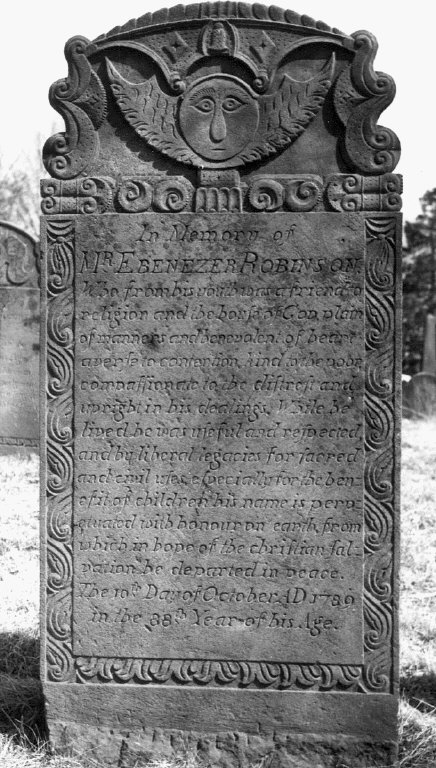 In Memory of
MR EBENEZER ROBINSON,
Who from his youth was a friend to
religion and the house of God, plain
of manners and benevolent of heart
averse to contention, kind to the poor
compassionate to the distrest and
upright in his dealings. While he
lived he was useful and respected,
and by liberal legacies for sacred
and civil uses, especially for the ben-
efit of children his name is perp-
etuated with honour on earth, from
which in hope of the christian sal-
vation he departed in peace.
The 10th Day of October AD 1789
in the 88th Year of his Age.